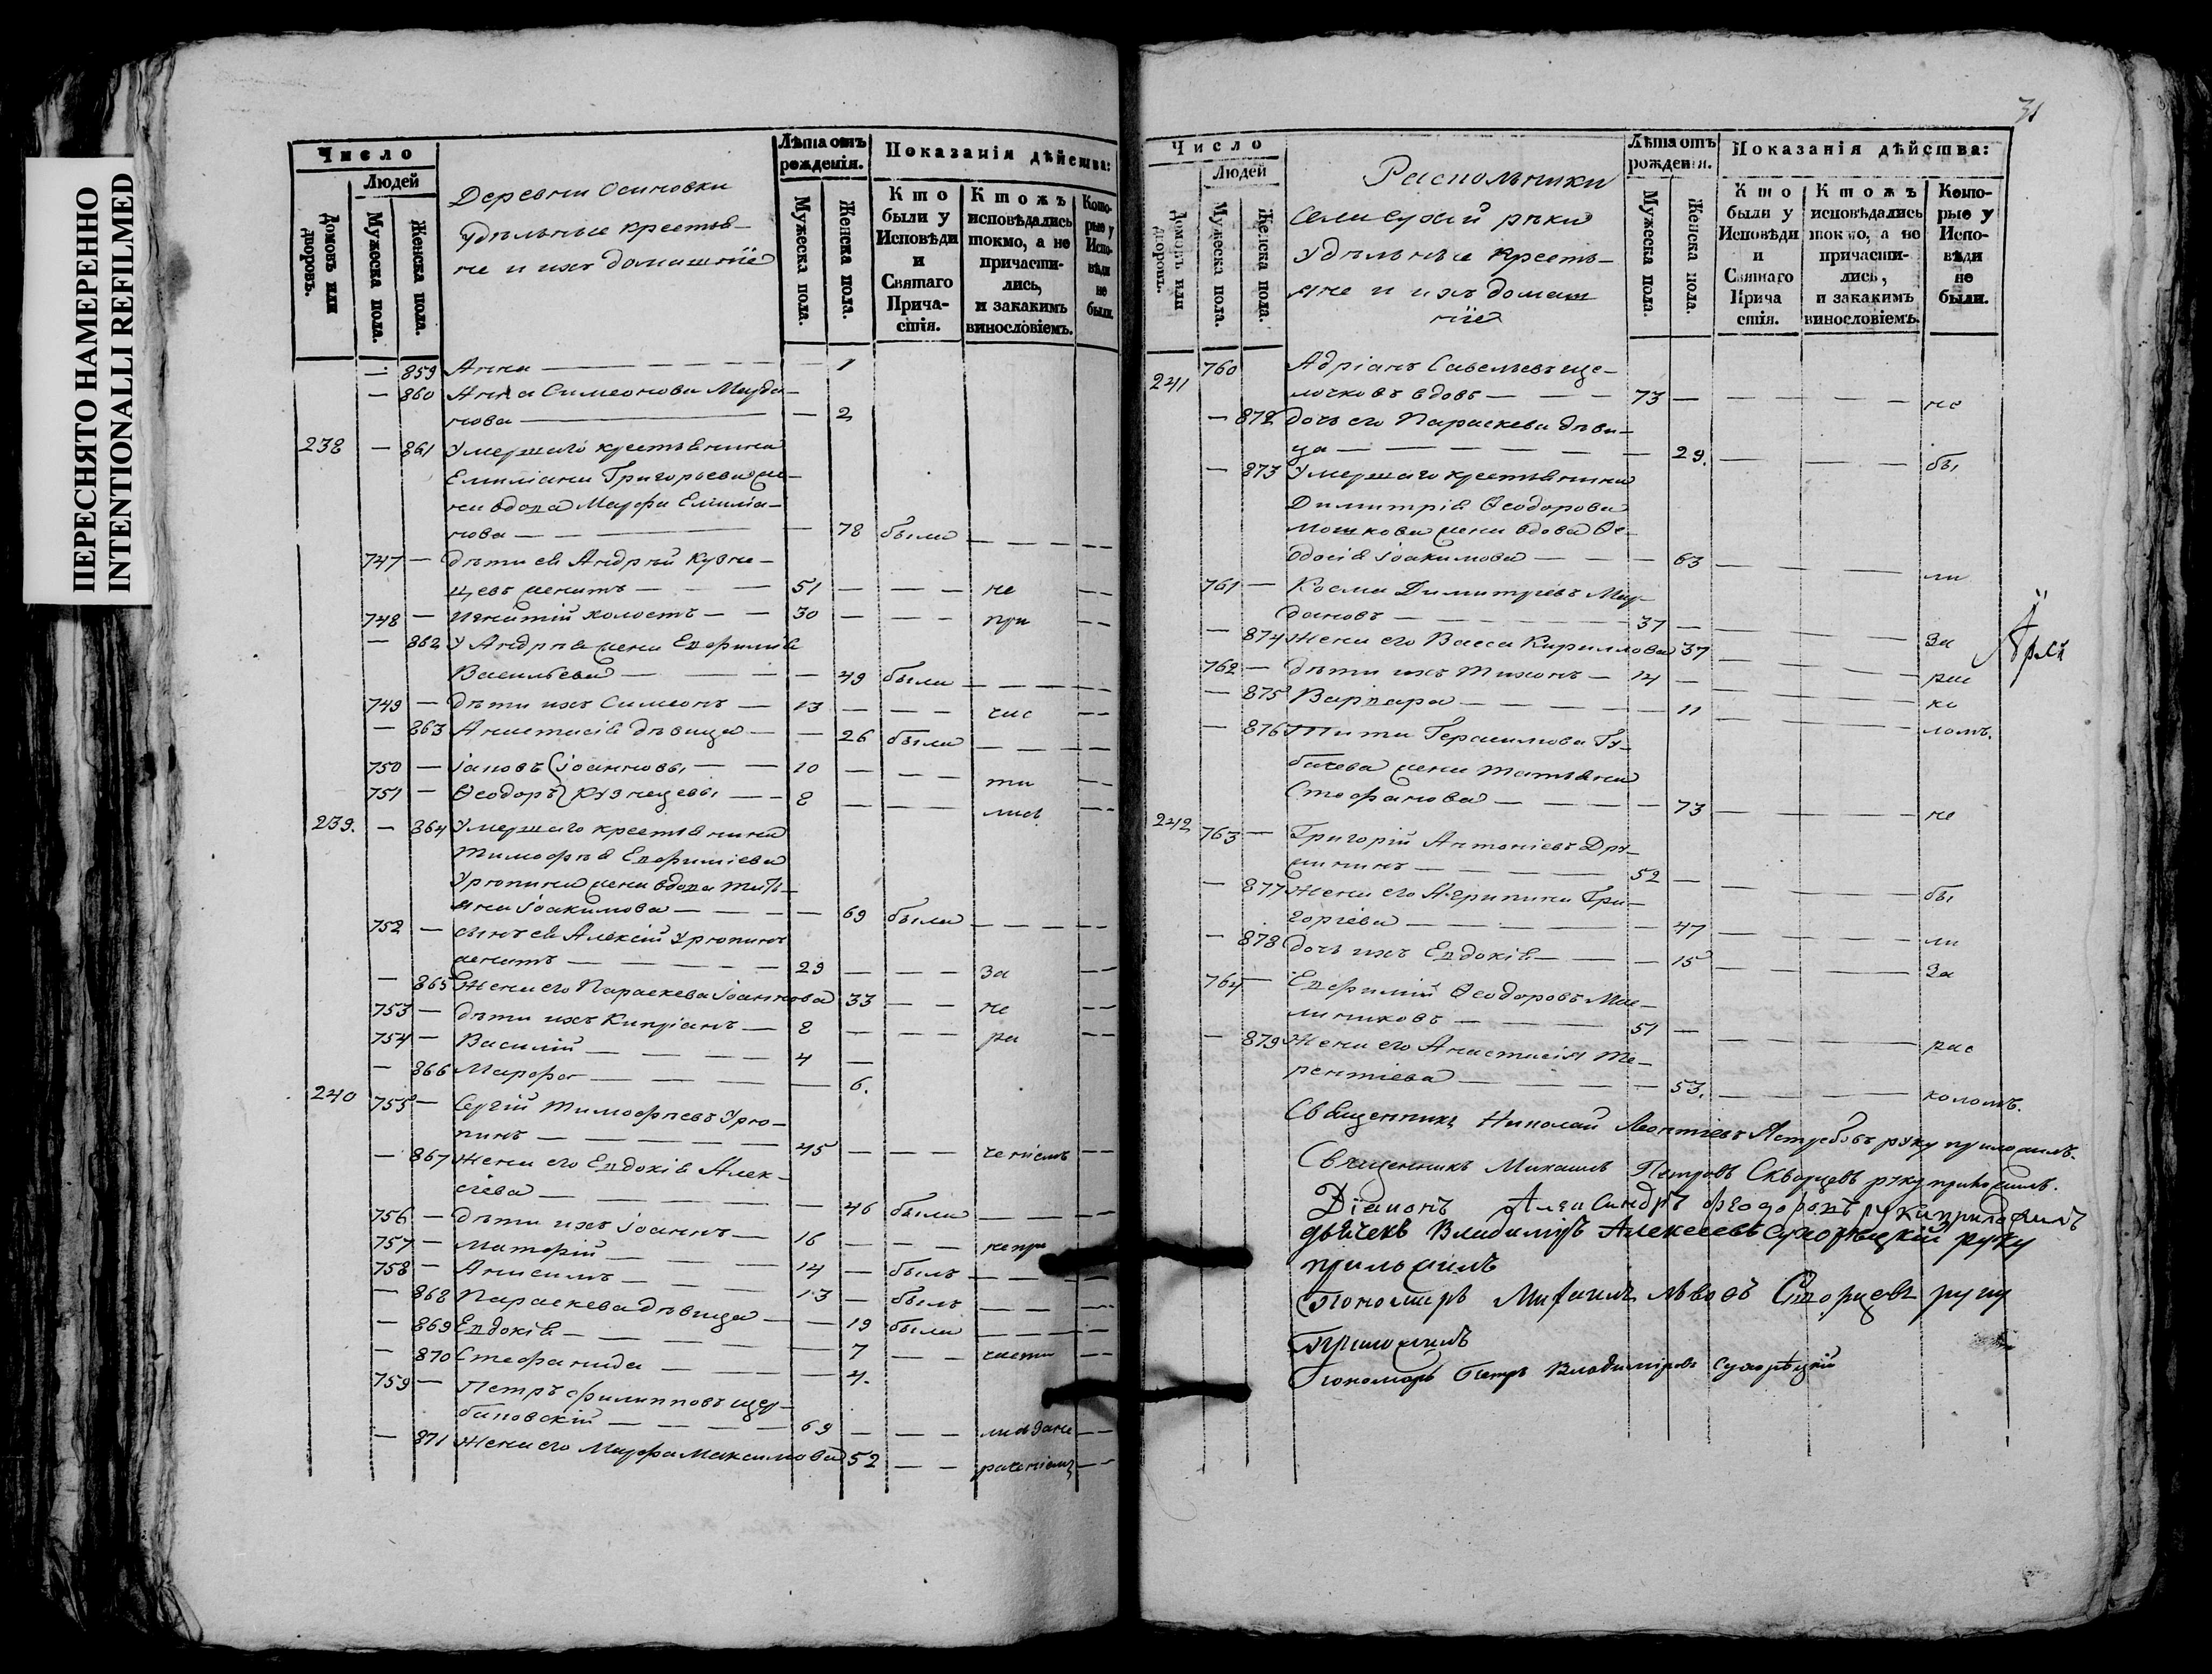 ПЕРЕСНЯТО НАМЕРЕННО
INTENTIONALLI REFILMED
Число
Людей
Домовъ или дворовъ.
Мужеска пола.
Женска пола.
Деревни Осиновки
удѣльные крестья-
не и ихъ домашніе
Лѣта отъ рожденія.
Мужеска пола.
Женска пола.
Показанія дѣйства:
Кто были у Исповѣди и Святаго Прича-стія.
Ктожъ исповѣдались токмо, а не причасти-лись, и закакимъ винословіемъ.
Кото-рые у Испо-вѣди не были.
— 859 Анна — — 1
— 860 Анна Симеонова Мурда-
нова — — 2
238 — 861 Умершаго крестьянина
Емиліана Григорьева же-
на вдова Марфа Емиліа-
нова — — 78 были — — —
747 — дѣти ея Андрей Кузне-
цевъ женатъ — 51 — — — не —
748 — Игнатій холостъ — 30 — — — при —
— 862 У Андрея жена Евфимія
Васильева — — 49 были — — —
749 — дѣти ихъ Симеонъ — 13 — — — час —
— 863 Анастасія дѣвица — — 26 были — — —
750 — Іаковъ Іоанновы — 10 — — — ти —
751 — Ѳеодоръ Кузнецовы — 8 — — — лись —
239. — 864 Умершаго крестьянина
Тимоѳея Евфиміева
Урюпина жена вдова Тать-
яна Іоакимова — — 69 были — — —
752 — сынъ ея Алексій Урюпинъ
женатъ — 29 — — — за —
— 865 Жена его Параскева Іоаннова 33 — — не —
753 — дѣти ихъ Кипріанъ — 8 — — — ра —
754 — Василій — 4 —
— 866 Марфа — — 6.
240 755 — Сергій Тимофѣевъ Урю-
пинъ — 45 — — — ченіемъ —
— 867 Жена его Евдокія Алек-
сіева — — 46 были — — —
756 — дѣти ихъ Іоаннъ — 16 — — — не при
757 — Матфій — 14 — былъ — — —
758 — Анисимъ — 13 — былъ — — —
— 868 Параскева дѣвица — — 19 были — — —
— 869 Евдокія — — 7 — — части —
— 870 Стефанида — — 4.
759 — Петръ Филипповъ Щер-
баковскій — 69 — — — лись за не —
— 871 Жена его Марфа Максимова 52 — — раченіемъ —
31
Число
Людей
Домовъ или дворовъ.
Мужеска пола.
Женска пола.
Раскольники
села Сухой рѣки
Удѣльные Кресть-
яне и ихъ домаш
ніе
Лѣта отъ рожденія.
Мужеска пола.
Женска пола.
Показанія дѣйства:
Кто были у Исповѣди и Святаго Прича стія.
Ктожъ исповѣдались токмо, а не причасти-лись, и закакимъ винословіемъ.
Кото-рые у Испо-вѣди не были.
241 760 Адріанъ Савельевъ Ще-
лочковъ вдовъ — 73 — — — — не
— 872 дочь его Параскева дѣви-
ца — — 29. — — — бы
— 873 Умершаго крестьянина
Димитрія Ѳеодорова
Мошкова жена вдова Ѳе-
одосія Іоакимова — — 63 — — — ли
761 — Косма Димитріевъ Мур-
дановъ — 37 —
— 874 Жена его Васса Кириллова 37 — — — за
762 — дѣти ихъ Тихонъ — 14 — — — рас
— 875 Варвара — — 11 — — — ко
— 876 Тита Герасимова Гу- — — — ломъ.
бачева жена Татьяна
Стефанова — — 73 — — — не
242 763 — Григорій Антоніевъ Дру-
жининъ — 52 — — — — бы
— 877 Жена его Агрипина Гри-
горіева — — 47 — — — ли
— 878 дочь ихъ Евдокія — — 15 — — — за
764 — Евфимій Ѳеодоровъ Мас-
лениковъ — 51 — — — — рас
— 879 Жена его Анастасія Те-
рентіева — — 53. — — — коломъ.
Священникъ Николай Леонтіевъ Ястребовъ руку приложилъ.
Священникъ Михаилъ Петровъ Скворцевъ руку приложилъ.
Діаконъ Александръ Феодоровъ руку приложилъ
дьячекъ Владиміръ Алексеевъ Сухорѣцкій руку
приложилъ
Пономарь Михаилъ Львовъ Скворцевъ руку
приложилъ
Пономарь Петръ Владиміровъ Сухорѣцкій